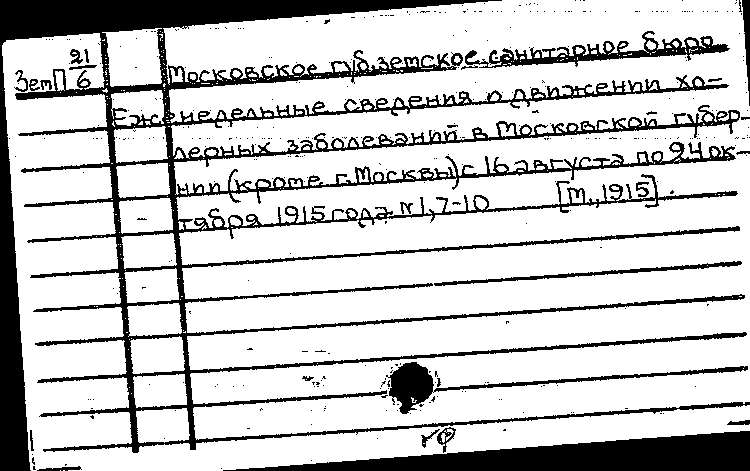 ЗемП 21/6
Московское губ.земское санитарное бюро
Еженедельные сведения о движении хо-
лерных заболеваний в Московской губер-
нии (кроме г.Москвы) с 16 августа по 24 ок-
тября 1915 года. N 1, 7-10 [М.,1915].